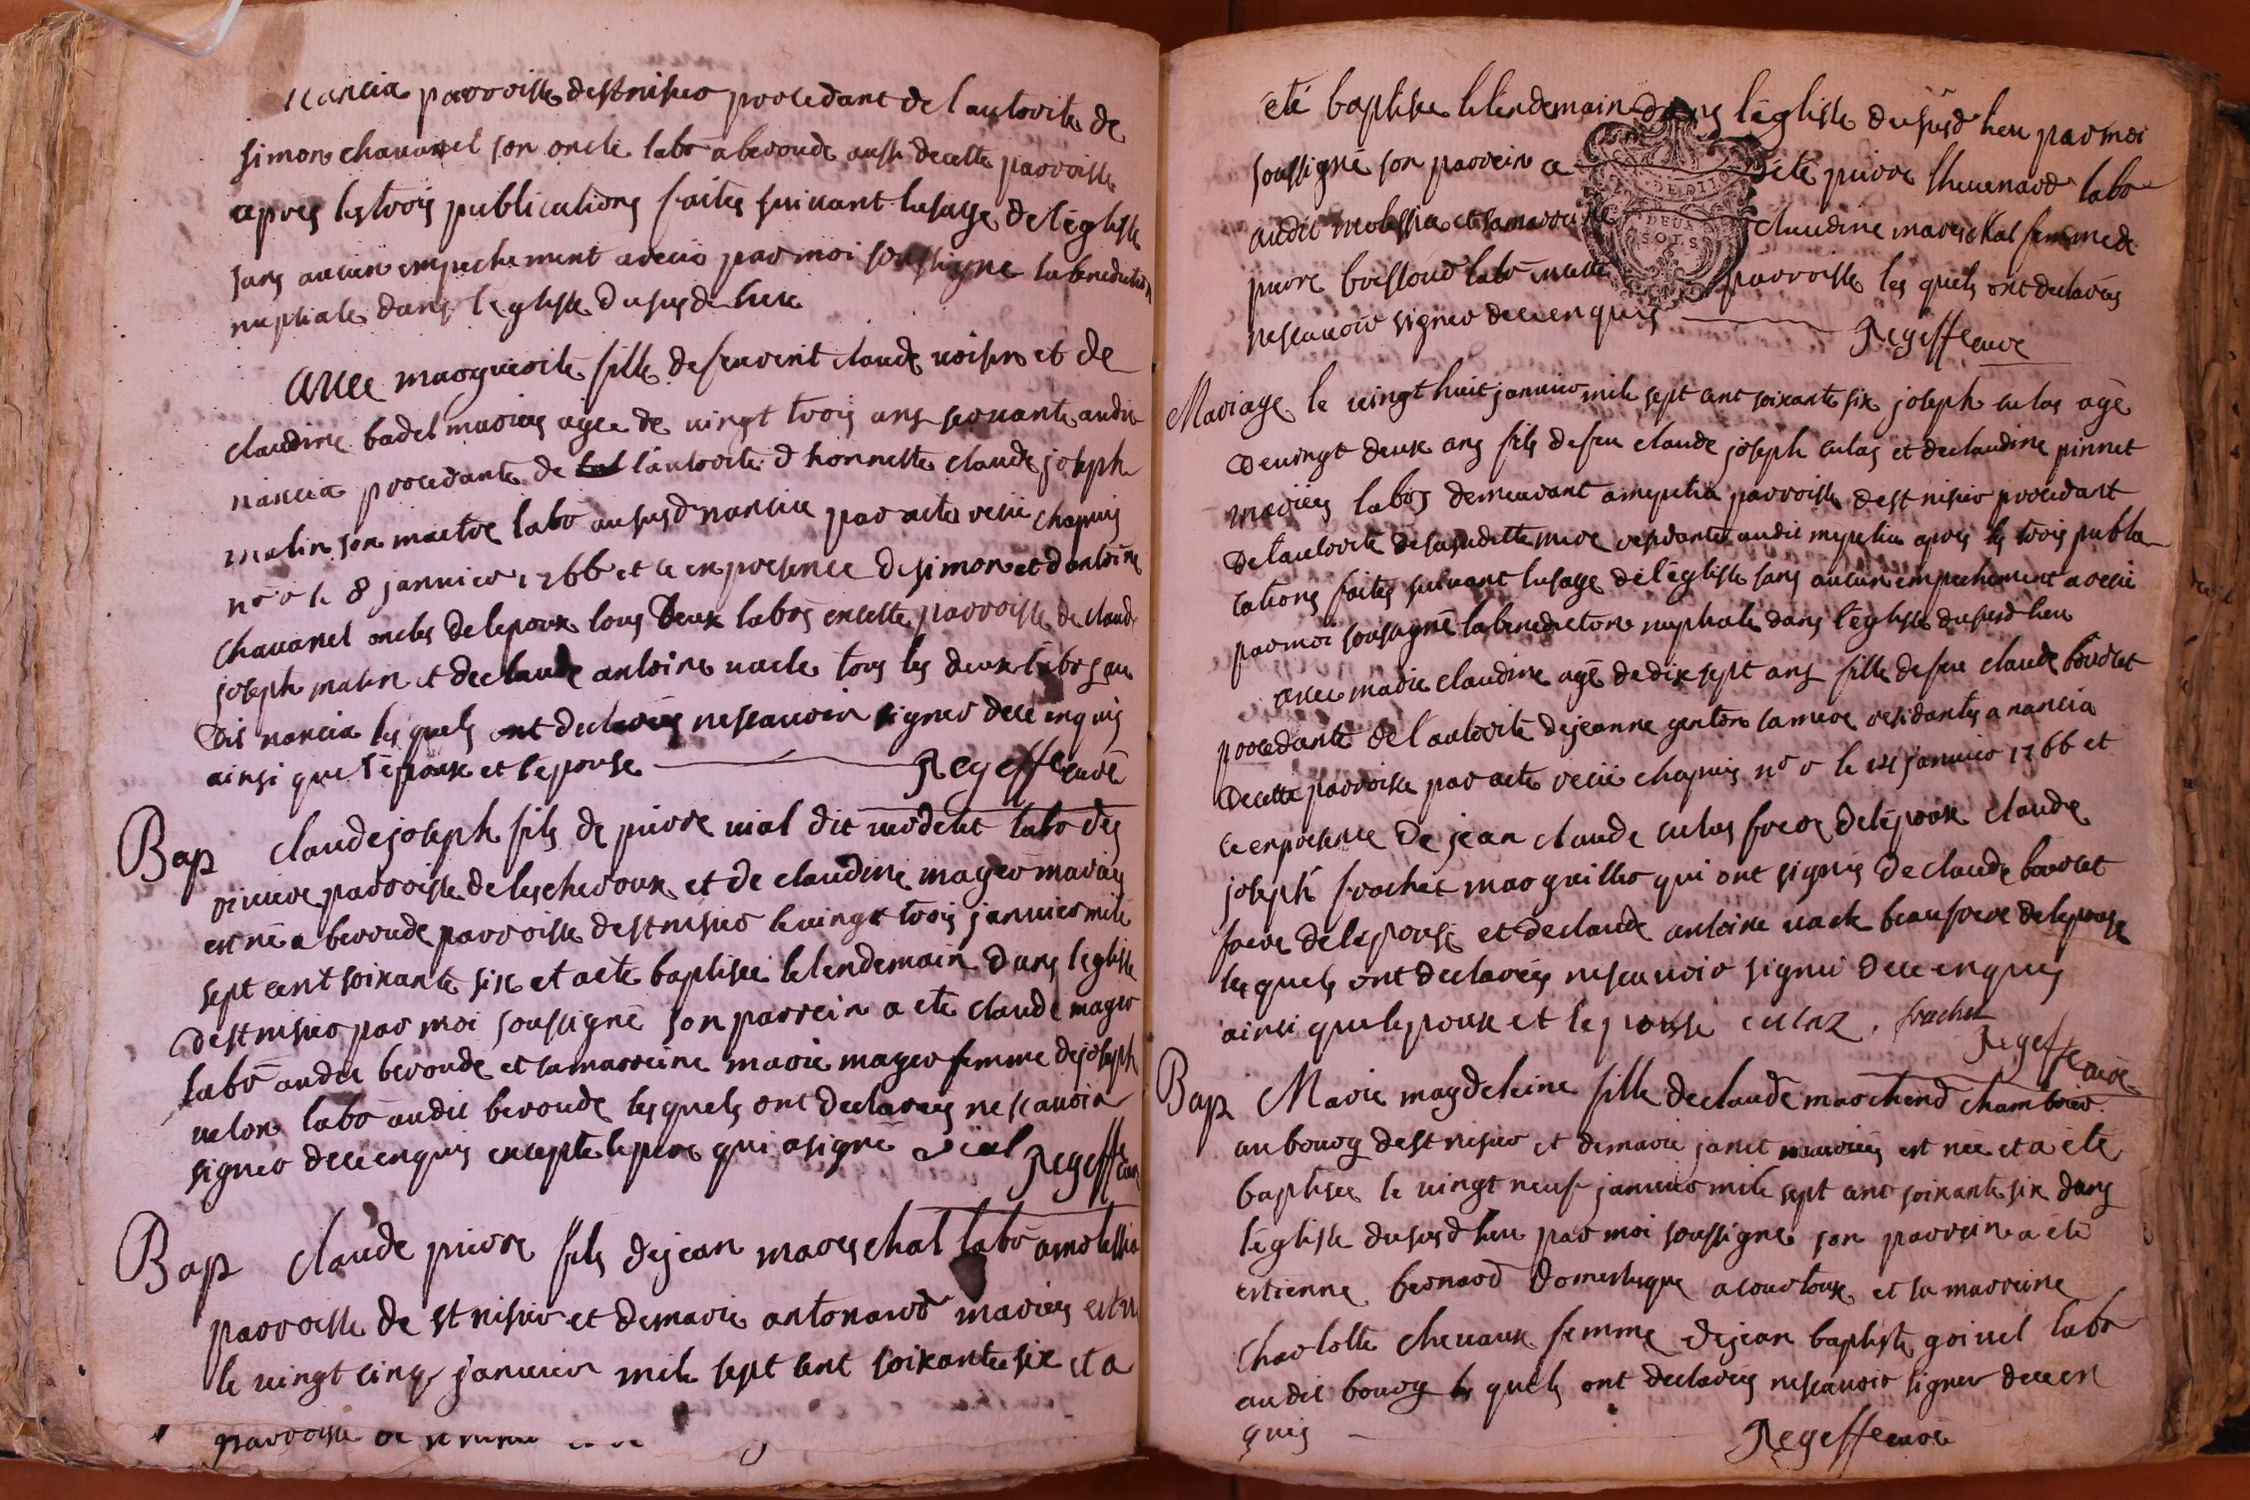 nancia parroisse de st nisier procedant de l autorite de
simon chavanel son oncle labr a beroude aussi de cette parroisse
apres les trois publications faites suivant lusage de leglise
sans aucun empechement a reçu par moi soussigne la benediction
nuptiale dans leglise du susd lieu
avec marguerite fille de feu vent claude voisin et de
claudine badel mariés agee de vingt trois ans servante audit
nancia procedante de l'autorite d honneste claude joseph
matin son maitre labr au susd nancia par acte recu chapuis
nre le 8 janvier 1766 et ce en presence de simon et d antoine
chavanel oncles de lepoux tous deux labrs en cette parroisse de claude
joseph matin et de claude antoine vacle tous les deux labrs au
dit nancia les quels ont declarés ne scavoir signer de ce enquis
ainsi que l'epoux et lepouse Regeffe curé
Bap claude joseph fils de pierre vial dit labr des
parroisse de lescheroux et de claudine mager mariés
est né a beroude parroisse de st nisier le vingt trois janvier mile
sept cent soixante six et a ete baptisée le lendemain dans leglise
de st nisier par moi soussigné son parrein a ete claude mager
labr audit beroude et sa marreine marie mager femme de joseph
velon labr audit beroude les quels ont declarés ne scavoir
signer de ce enquis excepte le pere qui a signé vial Regeffe curé
Bap claude pierre fils de jean mareschal labr a molissia
parroisse de st nisier et de marie antonard mariés est né
le vingt cinq janvier mile sept cent soixante six et a
parroisse de st nisier
été baptisée le lendemain dans l'eglise du susd lieu par moi
soussigné son parrein a été pierre thevenard labr
audit molissia et sa marreine claudine mareschal femme de
pierre bressoud labr parroisse les quels ont declarés
ne scavoir signer de ce enquis Regeffe curé
DEUX
SOLS
Mariage le vingt huit janvier mile sept cent soixante six joseph culas agé
de vingt deux ans fils de feu claude joseph culas et de claudine pinnet
mariés labrs demeurant a mypelia parroisse de st nisier procedant
de l'autorité de sa susditte mere residante audit mypelia apres les trois publi
cations faites suivant lusage de l'eglise sans aucun empechement a recu
par moi soussigné la benediction nuptiale dans l'eglise du susd lieu
avec marie claudine agé de dix sept ans fille de feu claude bourcet
procedante de l'autorité de jeanne genton sa mere residantes a nancia
de cette parroise par acte recu chapuis nre le janvier 1766 et
ce en presence de jean claude culas frere de lépoux claude
joseph frachet marguillier qui ont signés de claude bourcet
frere de lépouse et de claude antoine vacle beaufrere de lepouse
les quels ont declarés ne scavoir signer de ce enquis
ainsi que lepoux et lepouse culaz . frachet
Regeffe curé
Bap Marie magdeleine fille de claude marchend chambrier
au bourg de st nisier et de marie janet mariés est née et a été
baptisée le vingt neuf janvier mile sept cent soixante six dans
l'eglise du susd lieu par moi soussigné son parrein a été
estienne bernard domestique a courtoux et sa marreine
charlotte chevaux femme de jean baptiste goivel labr
audit bourg les quels ont declarés ne scavoir signer de ce en
quis Regeffe curé